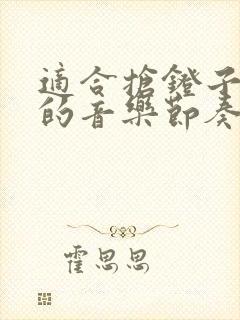 適合搶鐙子
的音樂節奏
霍思思